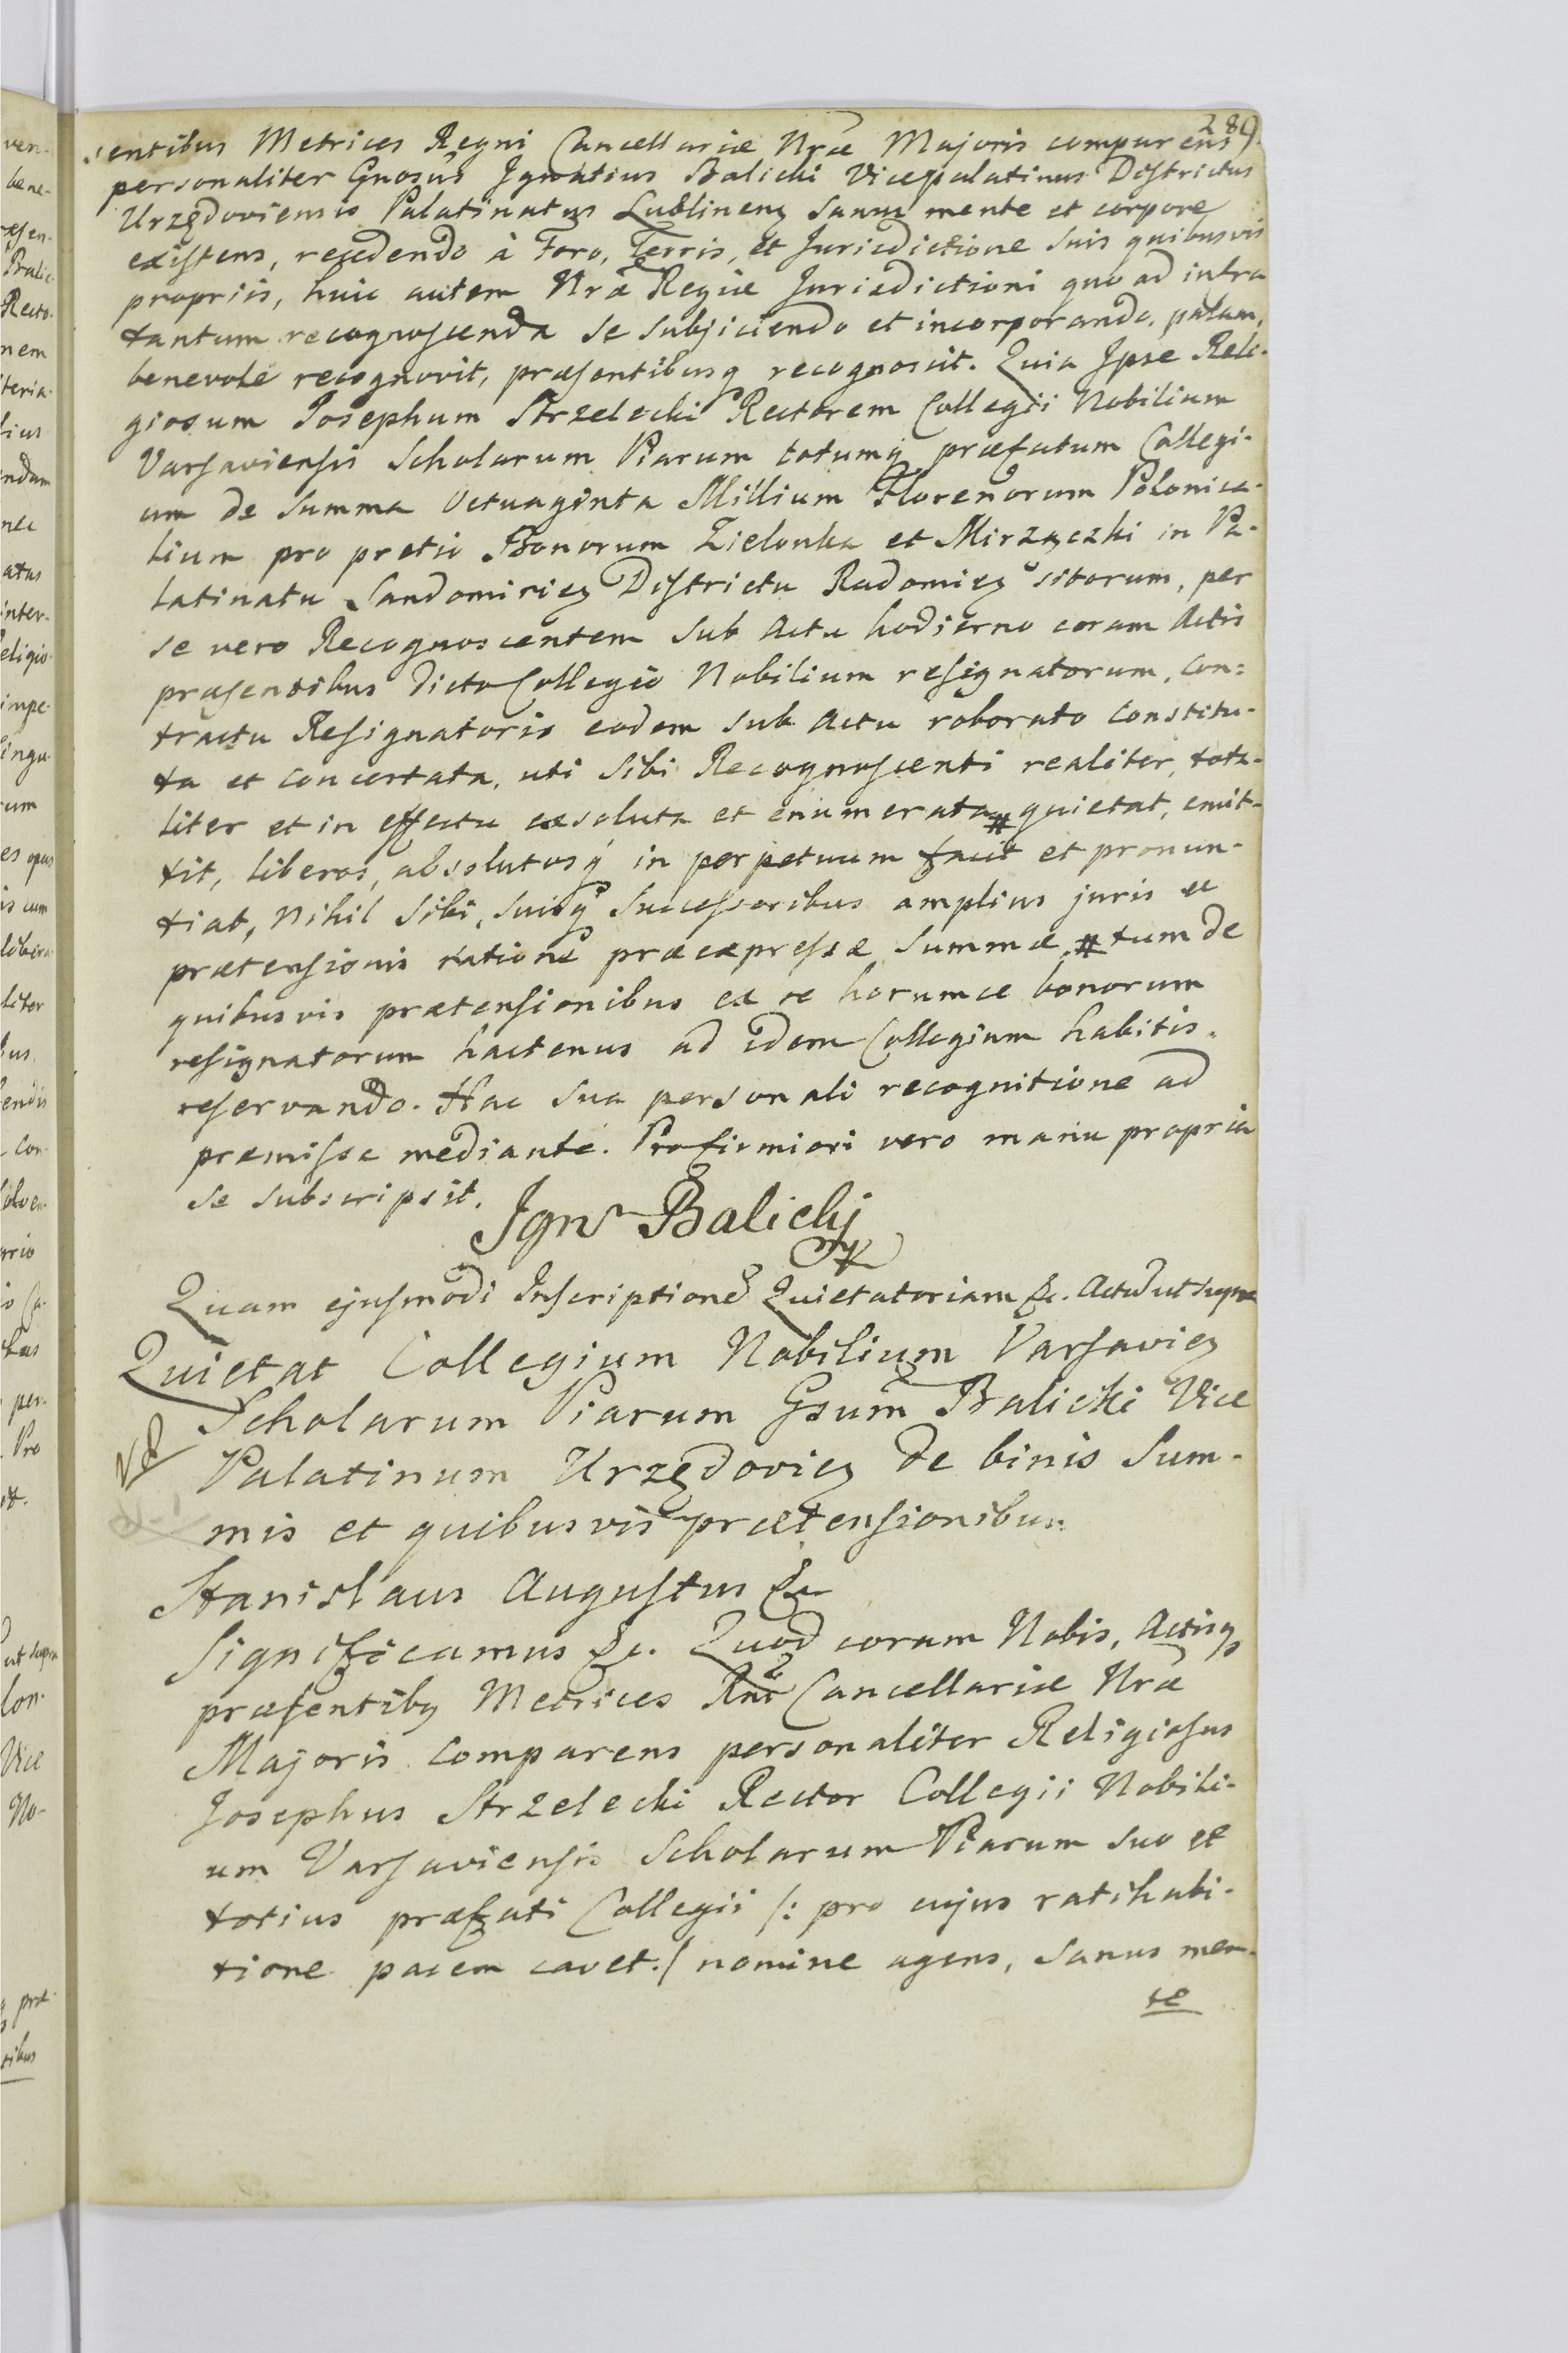 289.
sentibus Metrices Regni Cancellariæ Nræ Majoris comparens
personaliter Gnosus Ignatius Balicki Vicepalatinus Districtus
Urzędoviensis Palatinatus Lublinens sanus mente et corpore
existens, recedendo à Foro, Terris, et Jurisdictione suis quibusvis
propriis, huic autem Nræ Regiæ Jurisdictioni quo ad infra
tantum recognoscenda se subjiciendo et incorporando, palam,
benevole recognovit, præsentibusq recognoscit. Quia Ipse Reli-
giosum Josephum Strzelecki Rectorem Collegii Nobilium
Varsaviensis Scholarum Piarum totumq præfatum Collegi-
um de Summa Octuaginta Millium Florenorum Polonica-
lium pro pretio Bonorum Zielonka et Mirzączki in Pa-
latinatu Sandomirien Districtu Radomien sitorum, per
se vero Recognoscentem sub Actu hodierno coram Actis
præsentibus dicto Collegio Nobilium resignatorum, Con=
tractu Resignatorio eodem sub Actu roborato constitu-
ta et concertata, uti sibi Recognoscenti realiter, tota-
liter et in effectu exsoluta et enumerata # quietat, emit-
tit, liberos, absolutosq in perpetuum facit et pronun-
tiat, Nihil sibi, suisq Successoribus amplius juris et
prætensionis ratione præexpressæ Summæ, # tum de
quibusvis prætensionibus ex re horumce bonorum
resignatorum hactenus ad idem Collegium habitis.
reservando. Hac sua personali recognitione ad
præmissa mediante. Pro firmiori vero manu propria
se subscripsit.
Ign Balicki
mp
Quam ejusmodi Inscriptione Quietatoriam &c. Actu ut supra
Quietat Collegium Nobilium Varsavien
Scholarum Piarum Gsum Balicki Vice
Palatinum Urzędovien de binis Sum-
mis et quibusvis prætensionibus.
Stanislaus Augustus &c
Significamus &c. Quod coram Nobis, Actisq
præsentibq Metrices Rni Cancellariæ Nræ
Majoris comparens personaliter Religiosus
Josephus Strzelecki Rector Collegii Nobili-
um Varsaviensis Scholarum Piarum suo et
totius præfati Collegii /: pro cujus ratihabi-
tione pacem cavet./ nomine agens, sanus men-
te